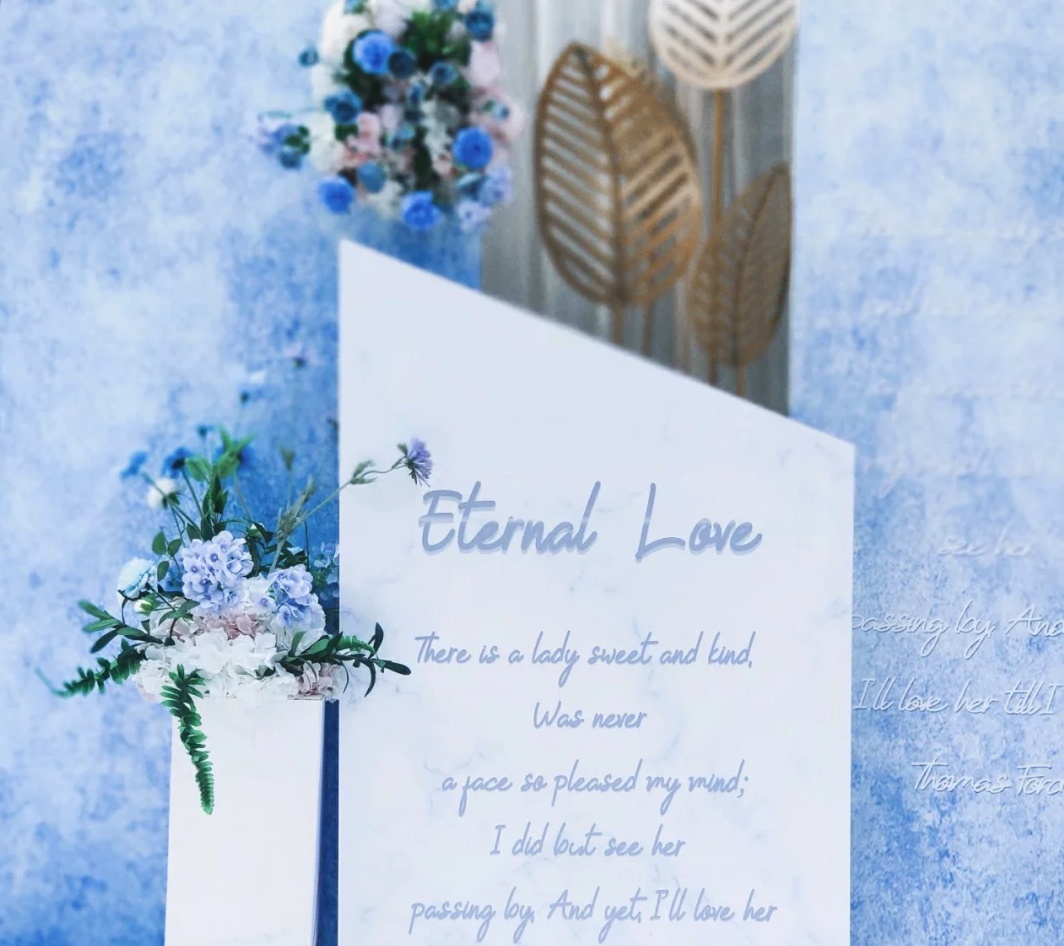 Eternal Love
There is a lady sweet and kind,
Was never
a face so pleased my mind;
I did but see her
passing by, And yet, I'll love her
see her
passing by, And
I'll love her till I
Thomas Ford